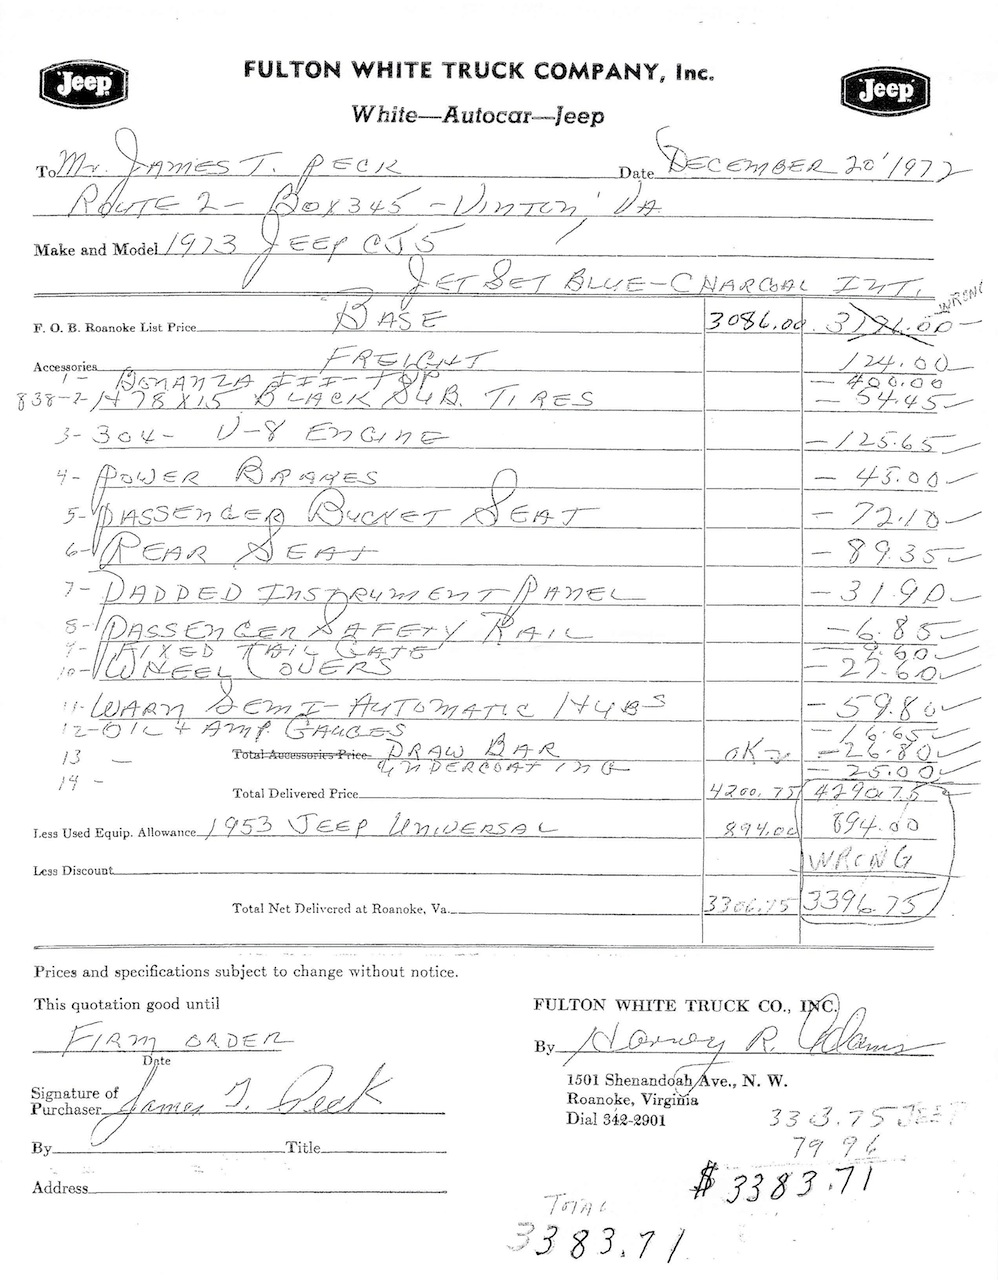 Jeep FULTON WHITE TRUCK COMPANY, Inc. Jeep
White—Autocar—Jeep
To Mr. JAMES T. PECK Date DECEMBER 20' 1972
ROUTE 2 - BOX 345 - VINTON, VA
Make and Model 1973 JEEP CJ5
JET SET BLUE - CHARCOAL INT.
WRONG
F. O. B. Roanoke List Price BASE 3086.00 3196.00
Accessories FREIGHT 124.00
1- BONANZA III - TOP - 400.00
838-2 H78X15 BLACK SUB. TIRES - 54.45
3- 304- V-8 ENGINE - 125.65
4- POWER BRAKES - 45.00
5- PASSENGER BUCKET SEAT - 72.10
6- REAR SEAT - 89.35
7- PADDED INSTRUMENT PANEL - 31.90
8- PASSENGER SAFETY RAIL - 6.85
9- FIXED TAIL GATE - 9.60
10- WHEEL COVERS - 27.60
11- WARN SEMI-AUTOMATIC HUBS - 59.80
12- OIL + AMP. GAUGES - 16.65
13 - Total Accessories Price DRAW BAR OK - 26.80
14 - UNDERCOATING - 25.00
Total Delivered Price 4200.75 4290.75
Less Used Equip. Allowance 1953 JEEP UNIVERSAL 894.00 894.00
WRONG
Less Discount
Total Net Delivered at Roanoke, Va. 3306.75 3396.75
Prices and specifications subject to change without notice.
This quotation good until
FIRM ORDER
Date
Signature of
Purchaser James T. Peck
By Title
Address
FULTON WHITE TRUCK CO., INC.
By Harvey R. Adams
1501 Shenandoah Ave., N. W.
Roanoke, Virginia
Dial 342-2901
3303.75 JEEP
79 96
$ 3383.71
TOTAL
3383.71